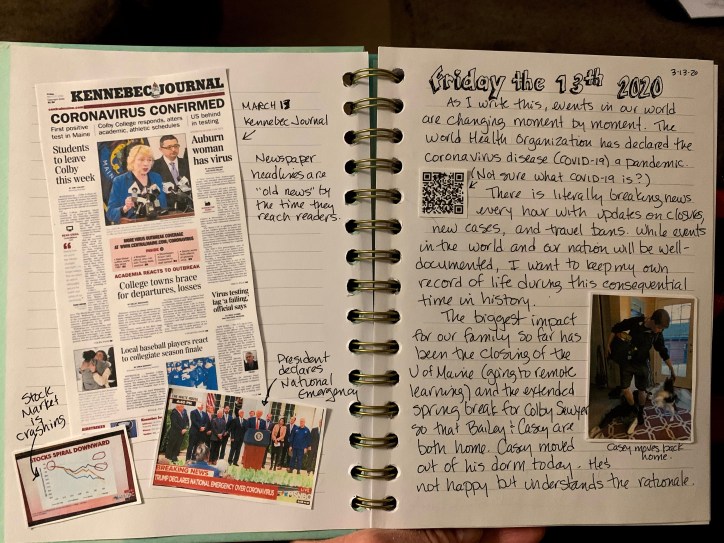 KENNEBEC JOURNAL
CORONAVIRUS CONFIRMED
First positive test in Maine
Colby College responds, alters academic, athletic schedules
US behind in testing
Students to leave Colby this week
Auburn woman has virus
MORE VIRUS OUTBREAK COVERAGE
AT WWW.CENTRALMAINE.COM/CORONAVIRUS
INSIDE
ACADEMIA REACTS TO OUTBREAK
College towns brace
for departures, losses
Virus testing
lag 'a failing,'
official says
Local baseball players react
to collegiate season finale
MARCH 13
Kennebec Journal
Newspaper
headlines are
"old news" by
the time they
reach readers.
President
declares
National Emergency
Stock
Market
is
crashing
STOCKS SPIRAL DOWNWARD
BREAKING NEWS
TRUMP DECLARES NATIONAL EMERGENCY OVER CORONAVIRUS
3-13-20
Friday the 13th 2020
As I write this, events in our world
are changing moment by moment. The
World Health Organization has declared the
coronavirus disease (COVID-19) a pandemic.
(Not sure what COVID-19 is?)
There is literally breaking news
every hour with updates on closures,
new cases, and travel bans. While events
in the world and our nation will be well-
documented, I want to keep my own
record of life during this consequential
time in history.
The biggest impact
for our family so far has
been the closing of the
U of Maine (going to remote
learning) and the extended
spring break for Colby Sawyer
so that Bailey & Casey are
both home. Casey moved
out of his dorm today. He's
not happy but understands the rationale.
Casey moves back
home.